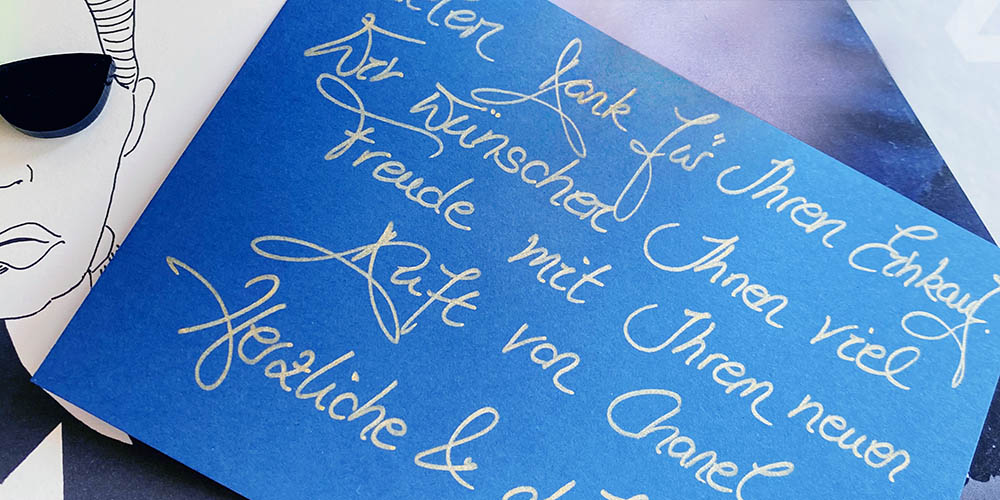 Dank für Ihren Einkauf.
Wir wünschen Ihnen viel
Freude mit Ihrem neuen
Duft von Chanel
Herzliche &